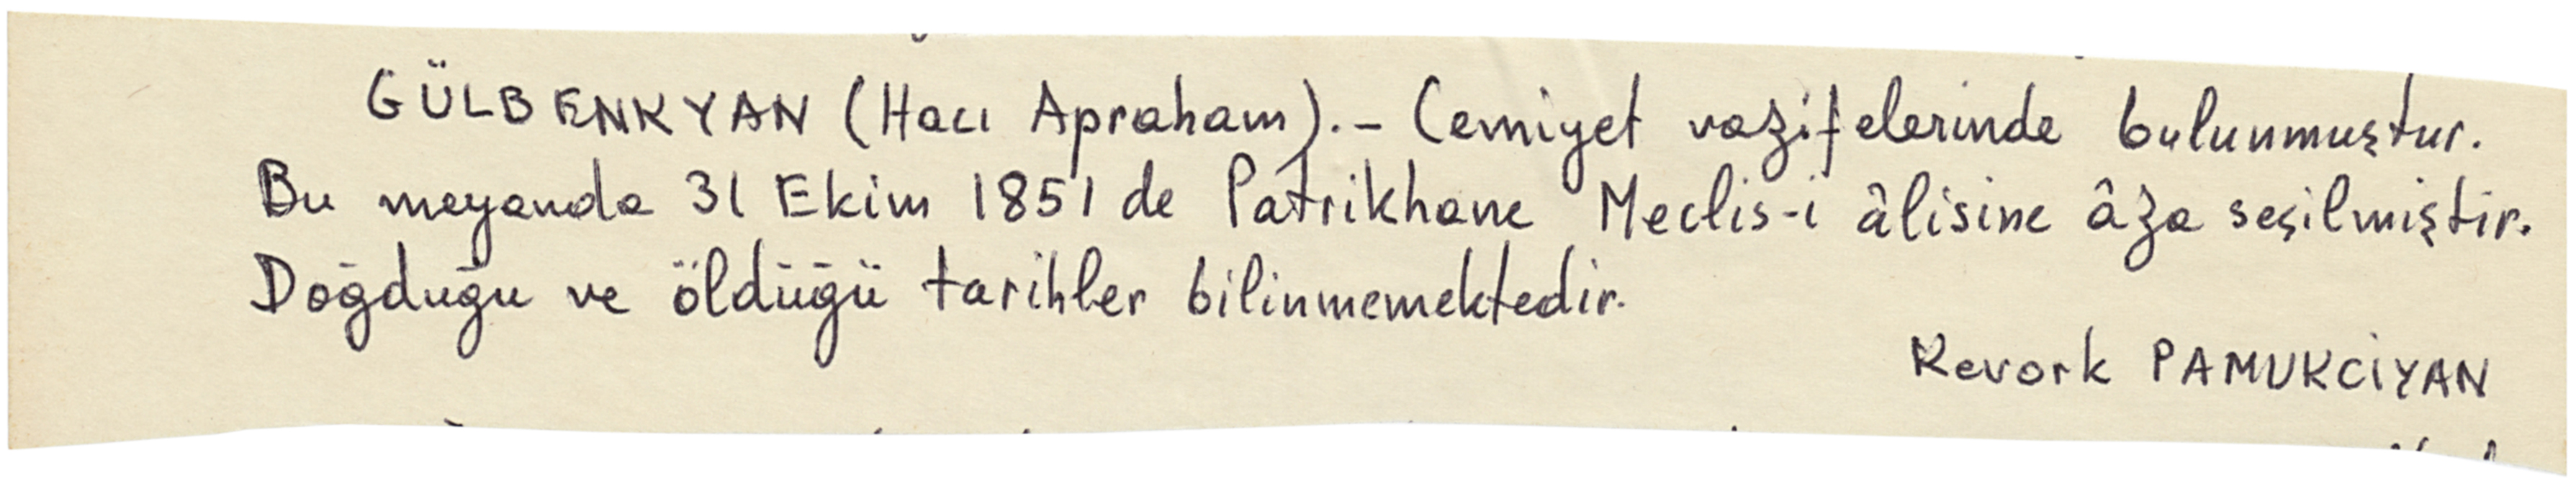 GÜLBENKYAN (Hacı Apraham).- Cemiyet vazifelerinde bulunmuştur.
Bu meyanda 31 Ekim 1851 de Patrikhane Meclis-i âlisine âza seşilmiştir.
Doğduğu ve öldüğü tarihler bilinmemektedir.
Kevork PAMUKCİYAN